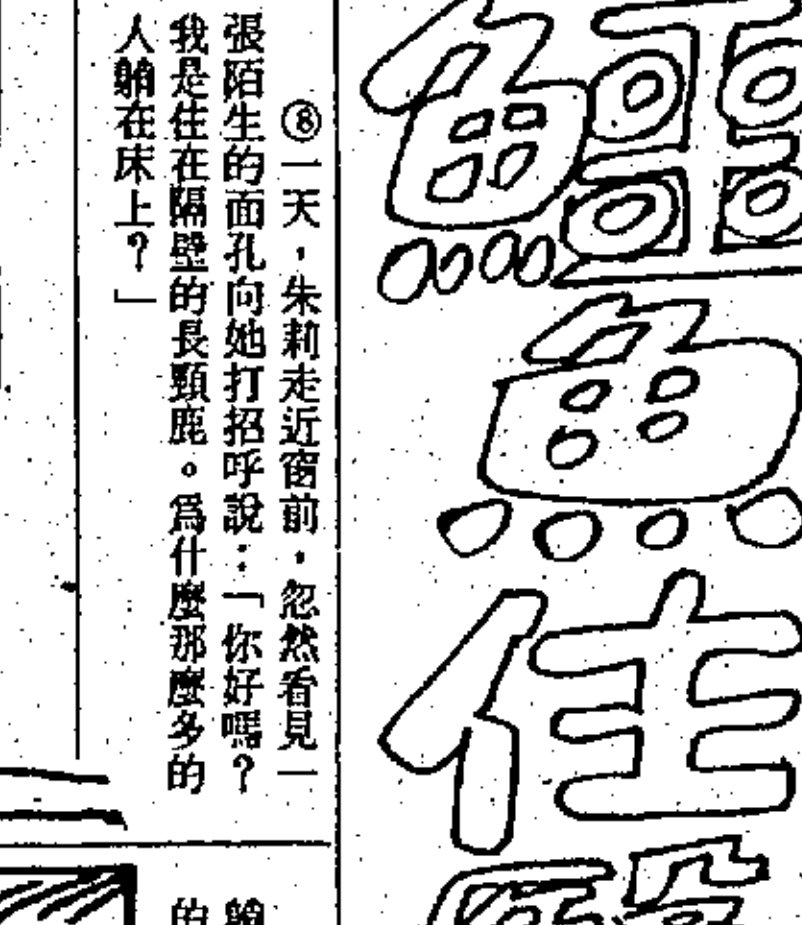 鱷魚住
⑧一天，朱莉走近窗前，忽然看見一
張陌生的面孔向她打招呼說：「你好嗎？
我是住在隔壁的長頸鹿。爲什麼那麼多的
人躺在床上？」
躺
的